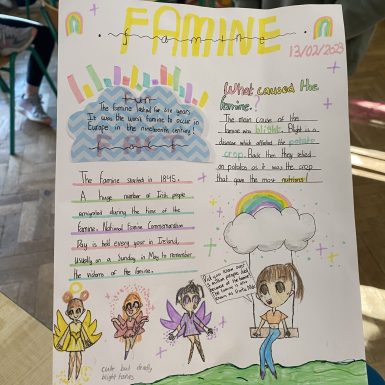 FAMINE
famine
13/02/2023
Fun
The famine lasted for six years.
It was the worst famine to occur in
Europe in the nineteenth century!
What caused the
famine?
The main cause of the
famine was blight. Blight is a
disease which affected the potato
crop. Back then they relied
on potatos as it was the crop
that gave the most nutrients!
The Famine started in 1845.
A huge number of Irish people
emigrated during the time of the
famine. National Famine Commemoration
Day is held every year in Ireland,
usually on a Sunday in May to remember
the victims of the famine.
Did you know over
1 million people died
because of the famine!
The famine is also
known as
cute but deadly
blight fairies